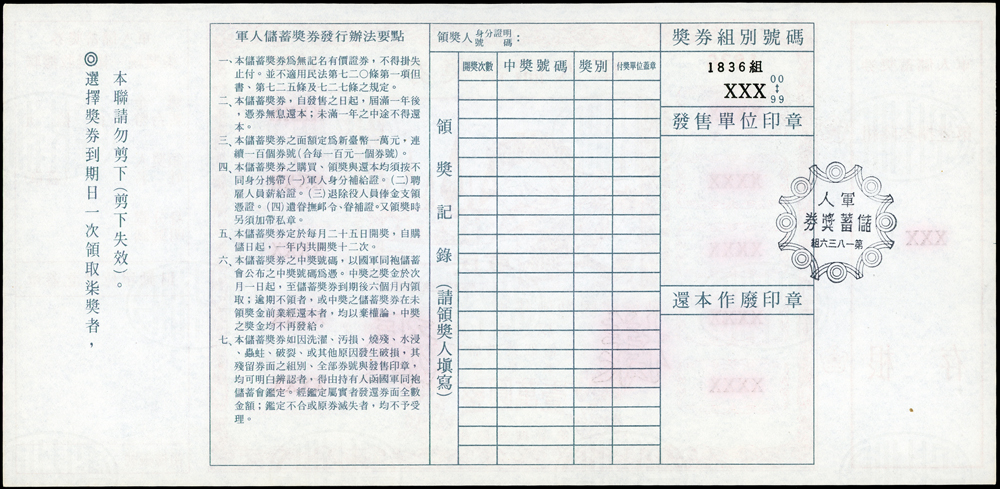 本聯請勿剪下(剪下失效)。
◎選擇獎券到期日一次領取柒獎者，
軍人儲蓄獎券發行辦法要點
一、本儲蓄獎券爲無記名有價證券，不得掛失
止付。並不適用民法第七二〇條第一項但
書、第七二五條及七二七條之規定。
二、本儲蓄獎券，自發售之日起，屆滿一年後
，憑券無息還本；未滿一年之中途不得還
本。
三、本儲蓄獎券之面額定爲新臺幣一萬元，連
續一百個券號(合每一百元一個券號)。
四、本儲蓄獎券之購買、領獎與還本均須按不
同身分携帶(一)軍人身分補給證。(二)聘
雇人員薪給證。(三)退除役人員俸金支領
憑證。(四)遺眷撫卹令、眷補證。又領獎時
另須加帶私章。
五、本儲蓄獎券定於每月二十五日開獎，自購
儲日起，一年內共開獎十二次。
六、本儲蓄獎券之中獎號碼，以國軍同袍儲蓄
會公布之中獎號碼爲憑。中獎之獎金於次
月一日起，至儲蓄獎券到期後六個月內領
取；逾期不領者，或中獎之儲蓄獎券在未
領獎金前業經還本者，均以棄權論，中獎
之獎金均不再發給。
七、本儲蓄獎券如因洗濯、汚損、燒殘、水浸
、蟲蛀、破裂、或其他原因發生破損，其
殘留券面之組別、全部券號與發售印章，
均可明白辨認者，得由持有人函國軍同袍
儲蓄會鑑定。經鑑定屬實者發還券面全數
金額；鑑定不合或原券滅失者，均不予受
理。
領獎人身分證明號碼：
領獎記錄(請領獎人塡寫)
開獎次數 中獎號碼 獎別 付獎單位蓋章
獎券組別號碼
1836組
XXX 00↕99
發售單位印章
還本作廢印章
軍人
儲蓄獎券
第一八三六組
XXX
XXX
XXX
XXX
XXX